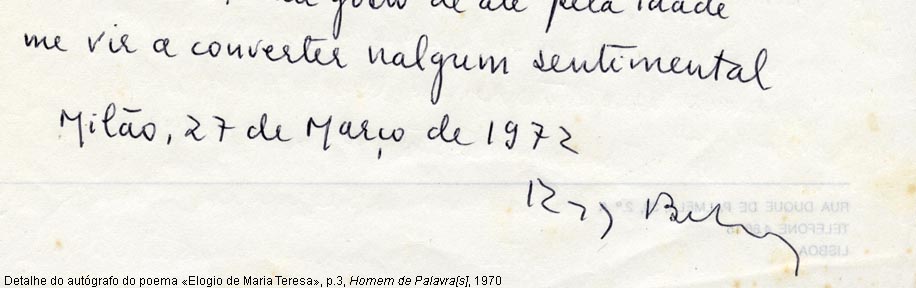 gosto de até pela idade
me vir a converter nalgum sentimental
Milão, 27 de Março de 1972
Ruy Belo
RUA DUQUE DE PALMEL
TELEFONE
LISBOA
Detalhe do autógrafo do poema «Elogio de Maria Teresa», p.3, Homem de Palavra[s], 1970